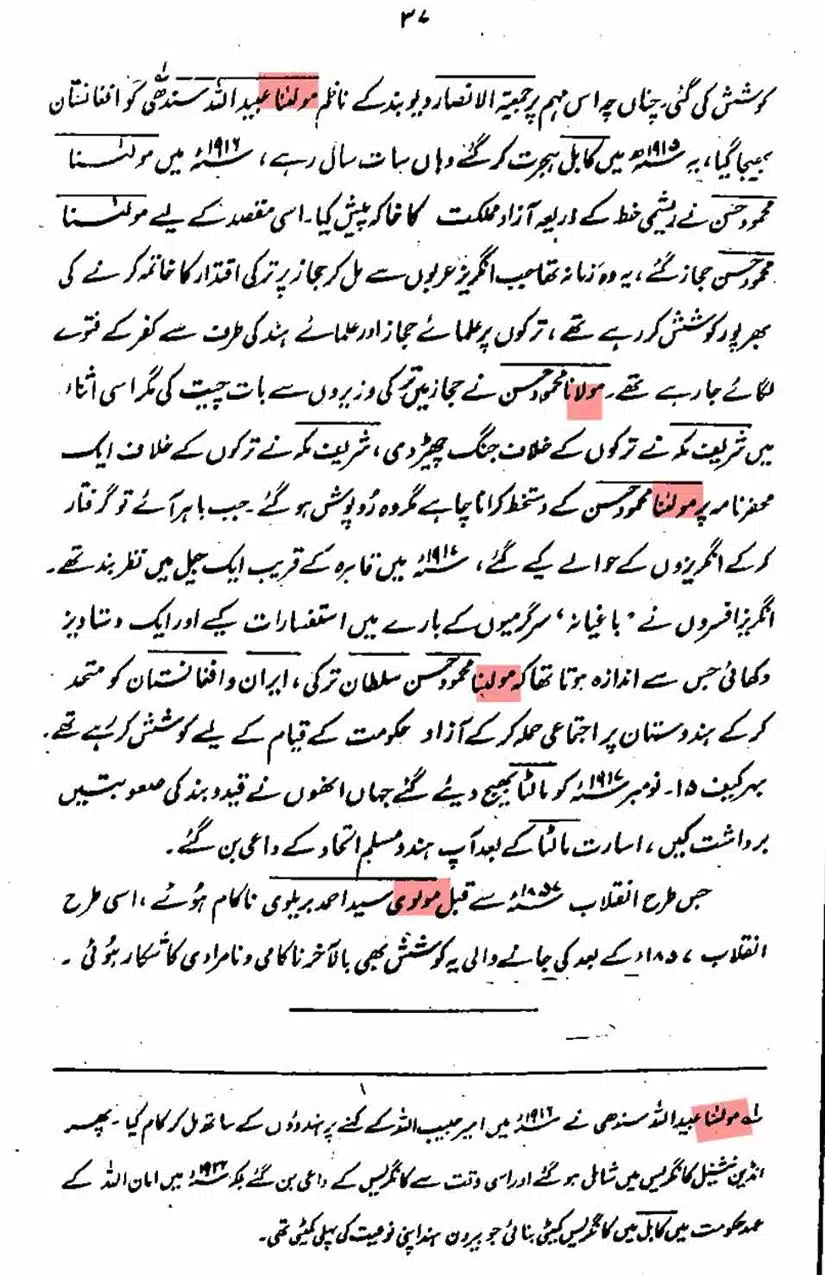 ۳۷
کوشش کی گئی۔ چناں چہ اس مہم پر جمعیۃ الانصار دیوبند کے ناظم مولٰنا عبید اللہ سندھیؒ ۱؎ کو افغانستان
بھیجا گیا، یہ ۱۹۱۵ء میں کابل ہجرت کر گئے وہاں سات سال رہے، ۱۹۱۶ء میں مولٰنا
محمود حسن نے ریشمی خط کے ذریعہ آزاد مملکت کا خاکہ پیش کیا۔ اسی مقصد کے لیے مولٰنا
محمود حسن حجاز گئے، یہ وہ زمانہ تھا جب انگریز عربوں سے مل کر حجاز پر ترکی اقتدار کا خاتمہ کرنے کی
بھرپور کوشش کر رہے تھے، ترکوں پر علمائے حجاز اور علمائے ہند کی طرف سے کفر کے فتوے
لگائے جا رہے تھے۔ مولانا محمود حسن نے حجاز میں ترکی وزیروں سے بات چیت کی مگر اسی اثناء
میں شریف مکہ نے ترکوں کے خلاف جنگ چھیڑ دی، شریف مکہ نے ترکوں کے خلاف ایک
محضر نامہ پر مولٰنا محمود حسن کے دستخط کرانا چاہے مگر وہ رُوپوش ہو گئے۔ جب باہر آئے تو گرفتار
کر کے انگریزوں کے حوالے کیے گئے، ۱۹۱۷ء میں قاہرہ کے قریب ایک جیل میں نظر بند تھے۔
انگریز افسروں نے ’باغیانہ‘ سرگرمیوں کے بارے میں استفسارات کیے اور ایک دستاویز
دکھائی جس سے اندازہ ہوتا تھا کہ مولٰنا محمود حسن سلطان ترکی، ایران و افغانستان کو متحد
کر کے ہندوستان پر اجتماعی حملہ کر کے آزاد حکومت کے قیام کے لیے کوشش کر رہے تھے۔
بہرکیف ۱۵۔ نومبر ۱۹۱۷ء کو مالٹا بھیج دیئے گئے جہاں انھوں نے قید و بند کی صعوبتیں
برداشت کیں، اسارت مالٹا کے بعد آپ ہندو مسلم اتحاد کے داعی بن گئے۔
جس طرح انقلاب ۱۸۵۷ء سے قبل مولوی سید احمد بریلوی ناکام ہُوئے، اسی طرح
انقلاب ۱۸۵۷ء کے بعد کی جانے والی یہ کوشش بھی بالآخر ناکامی و نامرادی کا شکار ہُوئی۔
۱؎ مولٰنا عبید اللہ سندھی نے ۱۹۱۶ء میں امیر حبیب اللہ کے کہنے پر ہندوؤں کے ساتھ مل کر کام کیا۔ پھر
انڈین نیشنل کانگریس میں شامل ہو گئے اور اسی وقت سے کانگریس کے داعی بن گئے بلکہ ۱۹۲۲ء میں امان اللہ کے
عہد حکومت میں کابل میں کانگریس کمیٹی بنائی جو بیرون ہند اپنی نوعیت کی پہلی کمیٹی تھی۔